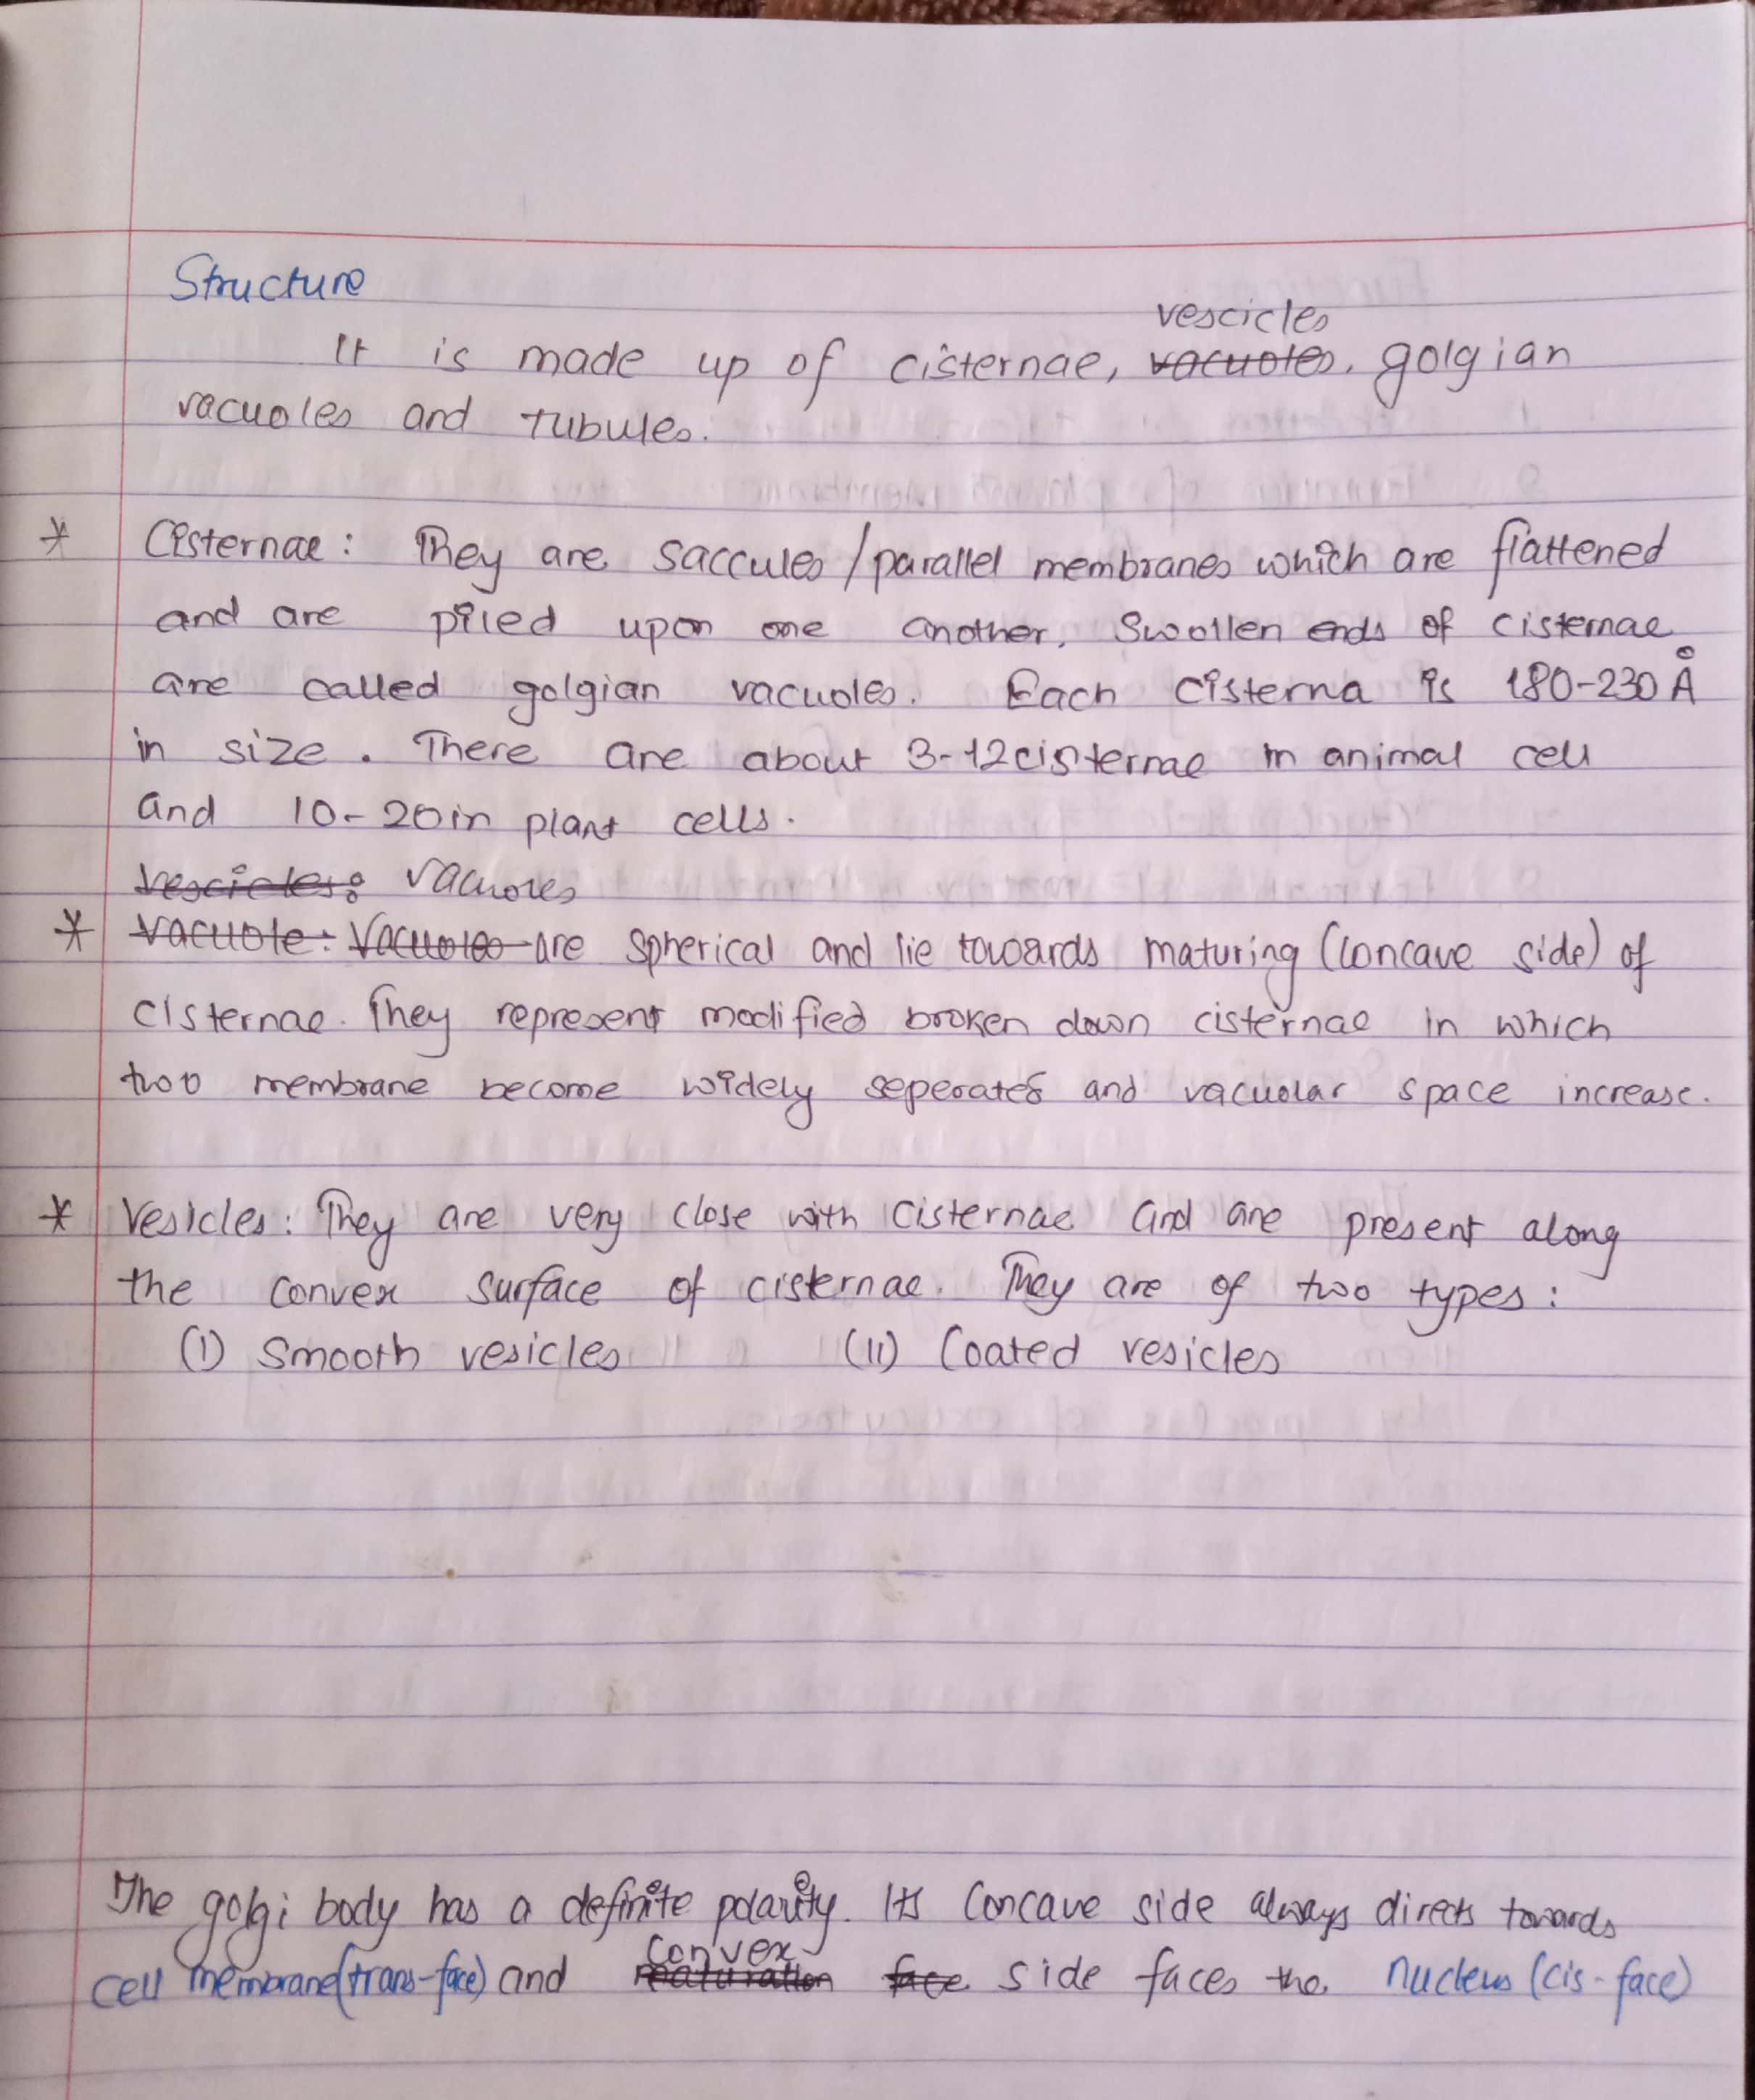 Structure
vescicles
It is made up of cisternae, vacuoles, golgian
vacuoles and tubules.
* Cisternae: They are saccules/parallel membranes which are flattened
and are piled upon one another. Swollen ends of cisternae
are called golgian vacuoles. Each cisterna is 180-230 Å
in size. There are about 3-12 cisternae in animal cell
and 10-20 in plant cells.
Vescicles: Vacuoles
* Vacuole: Vacuoles are spherical and lie towards maturing (concave side) of
cisternae. They represent modified broken down cisternae in which
two membrane become widely seperated and vacuolar space increase.
* Vesicles: They are very close with cisternae and are present along
the convex surface of cisternae. They are of two types:
(i) Smooth vesicles (ii) Coated vesicles
The golgi body has a definite polarity. Its concave side always directs towards
convex
cell membrane(trans-face) and maturation face side faces the nucleus (cis-face)